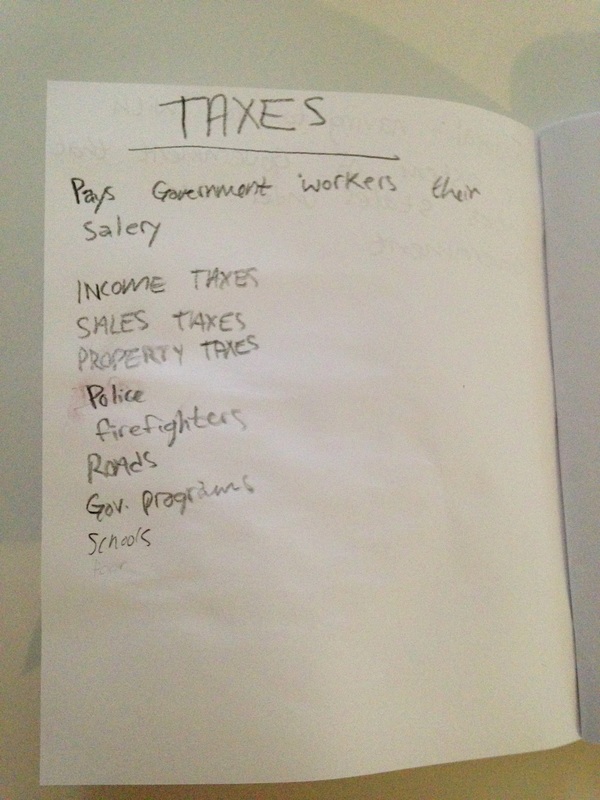 TAXES
Pays Government workers their
Salery
INCOME TAXES
SALES TAXES
PROPERTY TAXES
Police
firefighters
Roads
Gov. programs
Schools